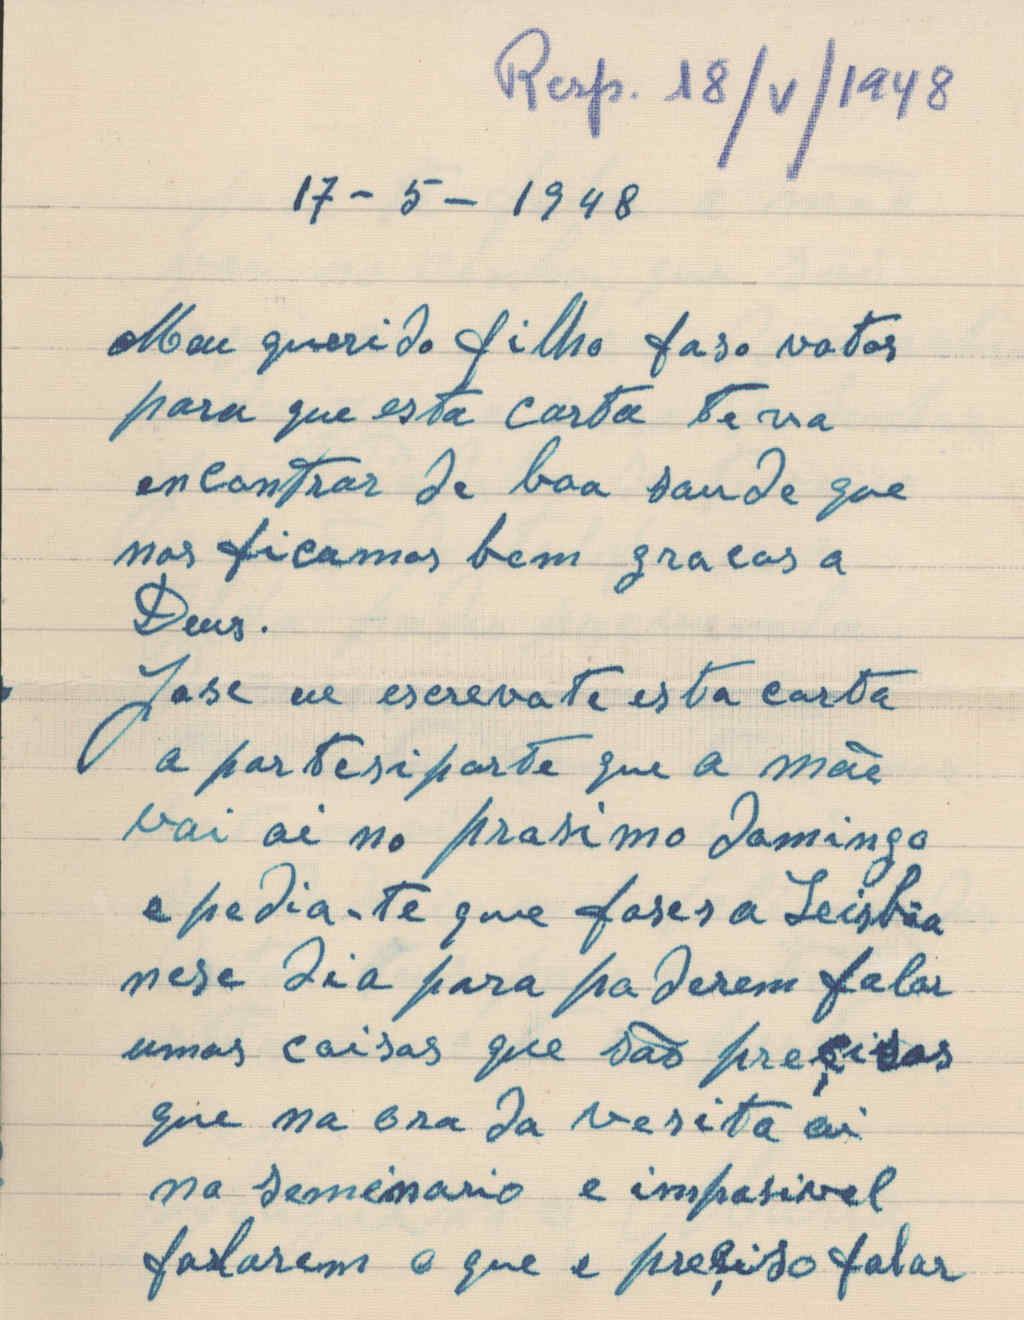 Resp. 18/V/1948
17-5-1948
Meu querido filho faso votos
para que esta carta te va
encontrar de boa saude que
nos ficamos bem gracas a
Deus.
Jose eu escrevote esta carta
a partesiparte que a mãe
vai ai no prosimo domingo
e pedia-te que foses a Leisbõa
nese dia para poderem falar
umas coisas que são preçisas
que na ora da vesita ai
no semenario e imposivel
farlarem o que e preçiso falar